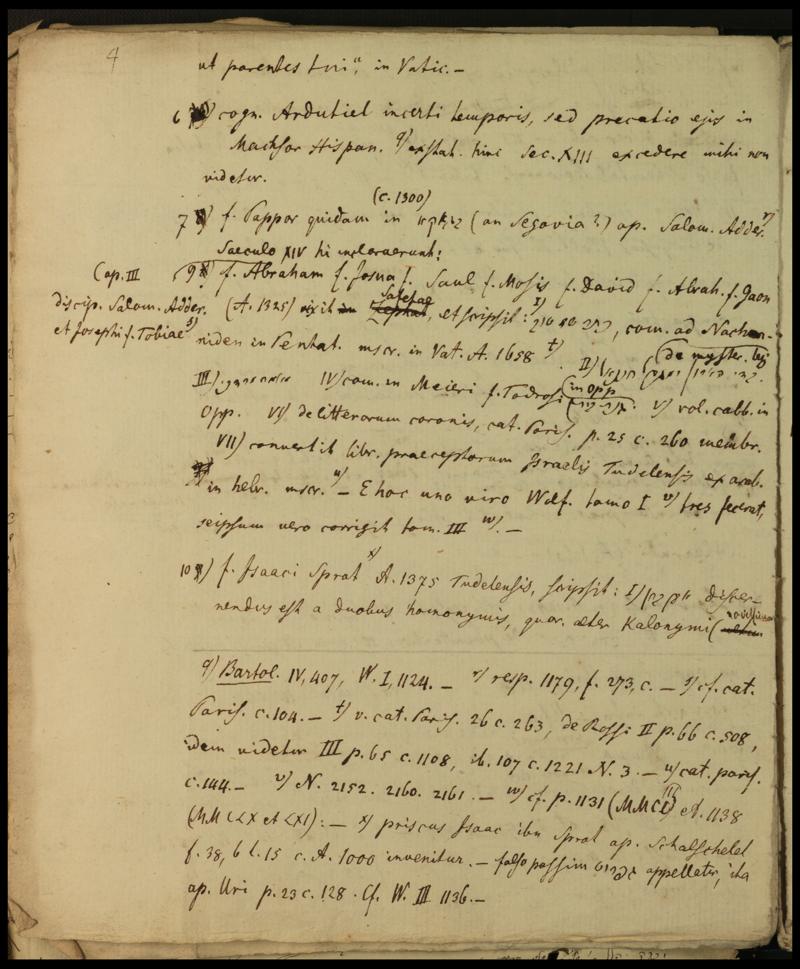 4
ut parentes in Vatic. —
6 cogn. Ardutiel incerti temporis, sed precatio ejus in
Machsor Hispan. q) exstat. hinc Sec. XIII excedere mihi non
videtur.
(c. 1300)
7 f. Pappor quidam in (an Segovia?) ap. Salom. Adder. r)
Saeculo XIV hi inclaruerunt:
Cap. III
9 f. Abraham f. Josua f. Saul f. Mosis f. David f. Abrah. f. Gaon
discip. Salom. Adder.
et Josephi f. Tobiae s)
(A. 1325) vixit Safetae, et scripsit: I) com. ad Nachma-
niden in Pentat. mscr. in Vat. A. 1658 t) II) (de myster. leg
III) IV) com. in Meieri f. Todrosi (in opp V) vol. cabb. in
Opp. VI) de litterarum coronis, cat. Paris. p. 25 c. 260 membr.
VII) convertit libr. praeceptorum Israelis Tudelensis ex arab.
in hebr. mscr. u) — E hoc uno viro Wolf. tomo I v) tres fecerat,
seipsum vero corrigit tom. III w). —
10 f. Isaaci Sprot x) A. 1375 Tudelensis, scripsit: I) discer-
nendus est a duobus homonymis, quor. alter Kalonymi (
q) Bartol. IV, 407, W. I, 1124. — r) resp. 1179, f. 273, c. — s) cf. cat.
Paris. c. 104. — t) v. cat. Paris. 26 c. 263, de Rossi II p. 66 c. 508,
idem videtur III p. 65 c. 1108, ib. 107 c. 1221 N. 3. — u) cat. paris.
c. 144. — v) N. 2152. 2160. 2161. — w) cf. p. 1131 et 1138
x) priscus Isaac ibn Sprot ap. Schalschelet
f. 38, 6 l. 15 c. A. 1000 invenitur. — falso passim appellatur, ita
ap. Uri p. 23 c. 128. Cf. W. III 1136. —